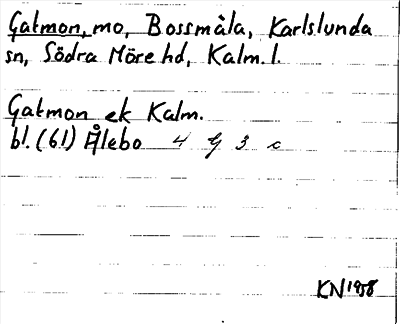 Gatmon, mo, Bossmåla, Karlslunda
sn, Södra Möre hd, Kalm. l.
Gatmon ek Kalm.
bl. (61) Ålebo 4 G 3 c
KN 1958